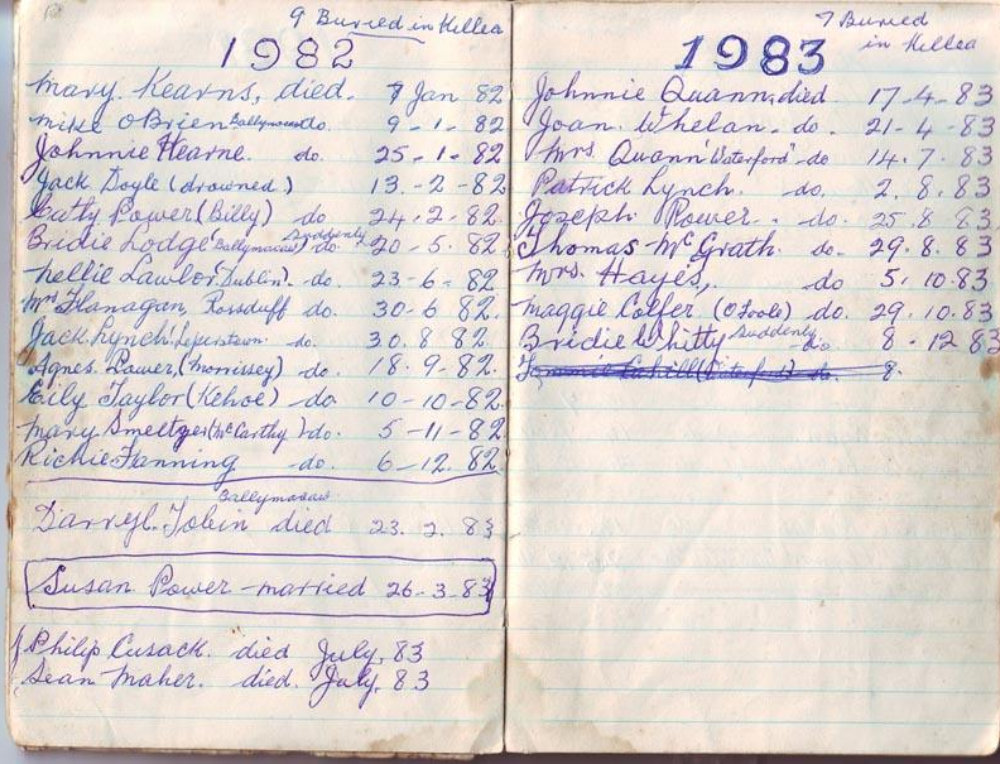 9 Buried in Killea
1982
Mary. Kearns, died. 7 Jan 82
Mike O'Brien Ballymacaw do. 9-1-82
Johnnie Hearne. do. 25-1-82
Jack Doyle (drowned) 13.-2-82
Catty Power (Billy) do 24.2.82.
Bridie Lodge (Ballymacaw) Suddenly do. 20-5.82.
Nellie Lawlor (Dublin). do. 23-6-82
Mrs Flanagan, Rossduff do 30-6 82.
Jack Lynch. Leperstown. do. 30.8 82.
Agnes. Power, (Morrissey) do. 18.9-82.
Eily Taylor (Kehoe) do 10-10-82.
Mary Smeltzer (McCarthy) do. 5-11-82
Richie Fanning do. 6-12.82
Ballymacaw
Darryl. Tobin died 23.2.83
Susan Power - married 26-3-83
Philip Cusack. died July, 83
Sean Maher. died. July, 83
7 Buried
in Killea
1983
Johnnie Quann, died. 17-4-83
Joan. Whelan. do. 21-4-83
Mrs. Quann "Waterford" do 14.7.83
Patrick Lynch. do. 2.8.83
Joseph Power.. do. 25.8 83.
Thomas McGrath. do. 29.8.83
Mrs. Hayes,. do 5.10.83
Maggie Colfer. (O Toole) do. 29.10.83
Bridie Whitty Suddenly do 8-12 83
Tommie Cahill (Waterford) do. 8.